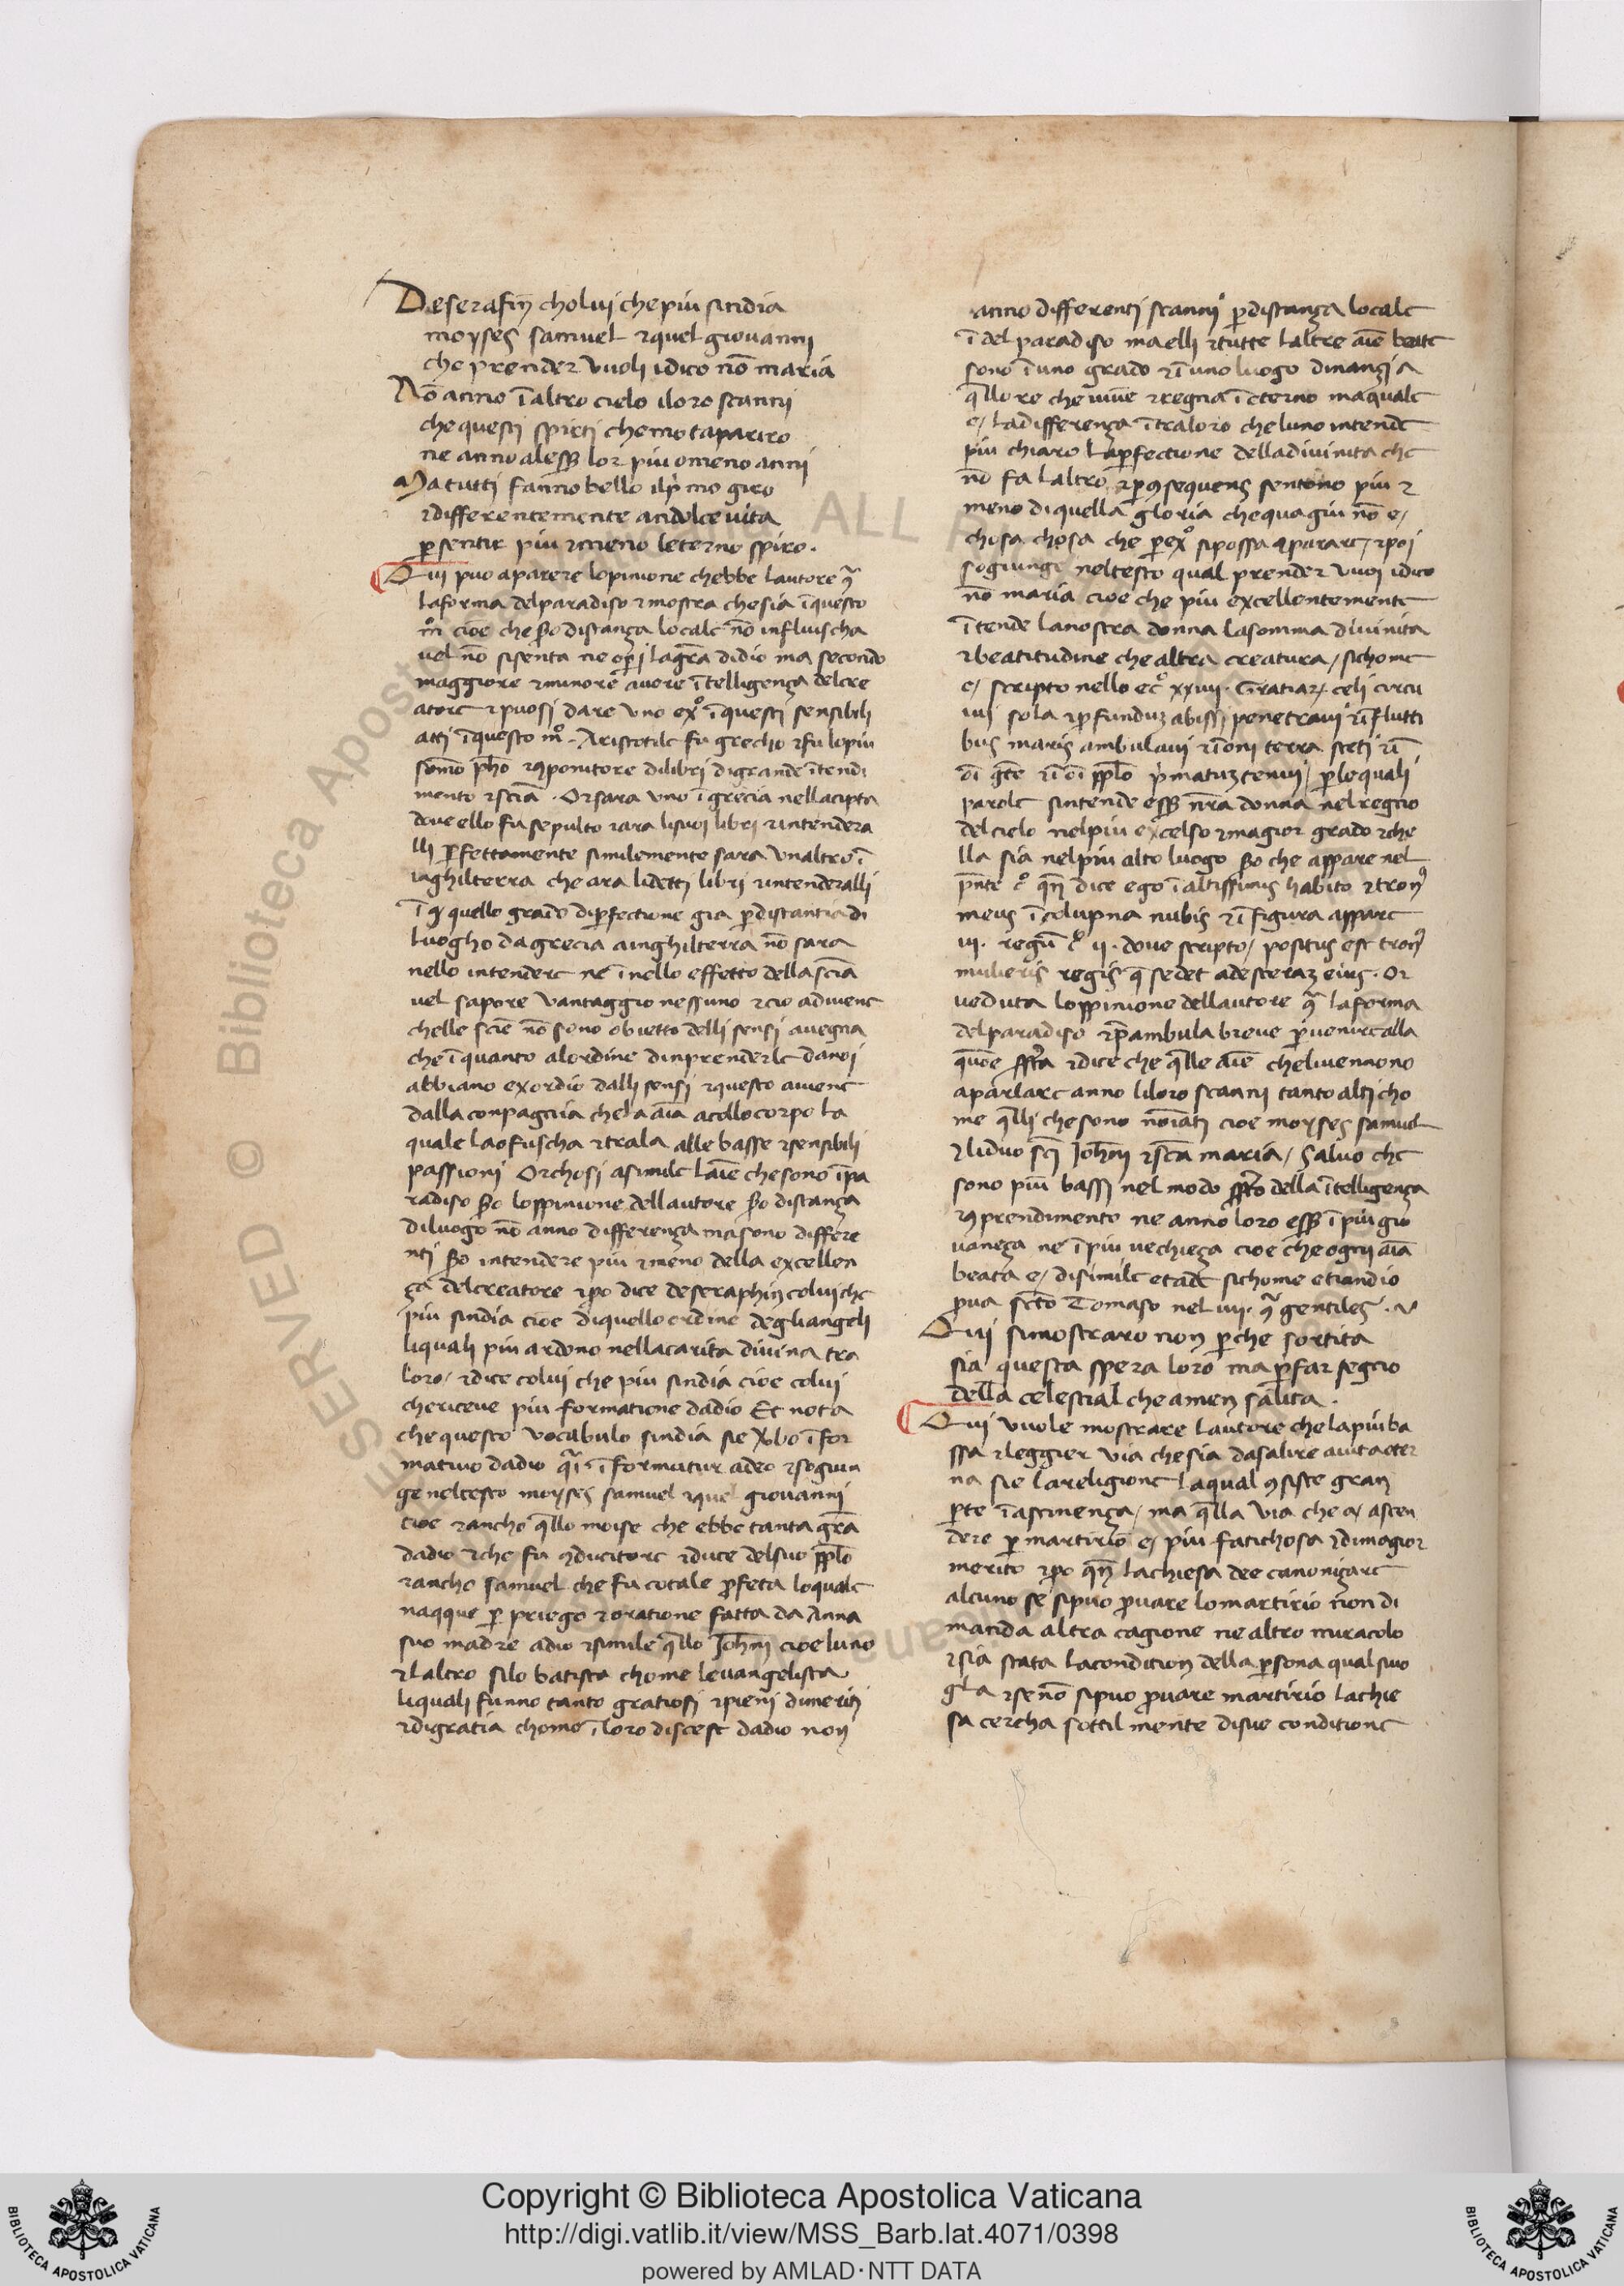 De serafin̄ cholui che piu sindia
moyses samuel ⁊ quel giouanni
che prender vuoli idico nō maria
Nō anno ī altro cielo iloro scanni
che questi spirti che mo tapariro
ne anno alesser lor piu omeno anni
Ma tutti fanno bello ilprimo giro
⁊ differentemente an dolce uita
p̱ sentir piu ⁊ meno leterno spiro.
Qui puo aparere lopinione chebbe lautore
la forma del paradiso ⁊ mostra che sia ī questo
cioe che distanza locale nō influischa
uel nō si senta ne lagrā didio ma secondo
maggiore ⁊ minore auere ītelligenza del cre
atore ⁊ puosi dare uno exº ī questi sensibili
atti ī questo mº. Aristotile fu grecho ⁊ fu lo piu
di libri di grande ītendi
mento ⁊ sciā. Or sara uno ī grecia nella cipta
doue ello fu sepulto ⁊ ara li suoi libri ⁊ intendera
lli perfettamente similemente sara unaltro ī
inghilterra che ara li detti libri ⁊ intenderalli
ī quello grado di perfectione gia p̱ distantia di
luogho da grecia a inghilterra nō sara
nello intendere ne ī nello effetto della sciā
uel sapore vantaggio nessuno ⁊ cio adiuene
chelle sciē nō sono obietto delli sensi auegna
che ī quanto alordine dinprenderle da noi
abbiano exordio dalli sensi ⁊ questo auiene
dalla conpagnia che la aīa a collo corpo la
quale la ofuscha ⁊ trala alle basse ⁊ sensibili
passioni Or chosi a simile laīe che sono ī pa
radiso loppinione dellautore distanza
di luogo nō anno differenza ma sono differe
nti intendere piu ⁊ meno della excellen
za del creatore ⁊ po dice de seraphin colui che
piu sindia cioe di quello ordine degliangeli
liquali piu ardono nella carita diuina tra
loro / ⁊ dice colui che piu sindia cioe colui
che riceue piu formatione dadio Et nota
che questo vocabulo sindia sie ībo ī for
matiuo dadio ī formatur adeo ⁊ sogiun
ge nel testo moyses samuel ⁊ quel giouanni
cioe ⁊ ancho q̄llo moise che ebbe tanta grā
dadio ⁊ che fu ꝯducitore ⁊ duce del suo pp̄lo
⁊ ancho samuel che fu cotale profeta loquale
naqque p̱ priego ⁊ oratione fatta da Anna
suo madre adio ⁊ simile q̄llo Joh̄ni cioe luno
⁊ laltro silo batista chome leuangelista
liquali funno tanto gratiosi ⁊ pieni di meriti
⁊ di gratia chome ī loro discese dadio non
anno differenti scanni p̱ distanza locale
ī del paradiso ma elli ⁊ tutte laltre aīe beate
sono ī uno grado ⁊ ī uno luogo dinanzi a
q̄llo re che uiue ⁊ regna ī eterno ma quale
e / la differenza ī tra loro che luno intende
piu chiaro la p̱fectione della diuinita che
nō fa laltro ⁊ p̱ ꝯsequens sentono piu ⁊
meno di quella gloria che qua giu nō e /
chosa chosa che p̱ exº si possa ꝯparare / ⁊ poi
sogiunge nel testo qual prender vuoi idico
nō maria cioe che piu excellentemente
ītende la nostra donna la somma diuinita
⁊ beatitudine che altra creatura / sichome
e / scripto nello ecº xxiiij. Gratiaꝝ celi circu
iui sola ⁊ p̱fundum abissi penetraui ⁊ ī flutti
bus maris ambulaui ⁊ ī oni terra steti ⁊ ī
oī gēte ⁊ ī oī pp̄lo primatum tenui / p̱ lequali
parole sintende esser nr̄a donna nel regno
del cielo nel piu excelso ⁊ magior grado ⁊ che
lla sia nel piu alto luogo che appare nel
dice ego ī altissimis habito ⁊ tronus
meus ī columpna nubis ⁊ ī figura appare
iij. regū cº ij. doue scripto / positus est tronus
mulieris regis q̄ sedet adesteram eius. Or
ueduta loppinione dellautore la forma
del paradiso ⁊ p̄ambula breue p̱ uenire alla
⁊ dice che q̄lle aīe che li uennono
a parlare anno li loro scanni tanto alti cho
me q̄lli che sono noīati cioe moyses samuel
⁊ li duo sc̄i Joh̄ni ⁊ sc̄a maria / Saluo che
sono piu bassi nel modo della ītelligenza
⁊ ꝯprendimento ne anno loro esser ī piu gio
uaneza ne ī piu uechieza cioe che ogni aīa
beata e / di simile etade sichome etiandio
proua Tomaso nel iiij. gentiles.
Qui si mostraro non p̱che sortita
sia questa spera loro ma p̱ far segno
della celestial che a men salita.
Qui vuole mostrare lautore che la piu ba
ssa ⁊ leggier via che sia da salire a uita eter
na sie la religione la qual ꝯsiste gran
p̱te ī astinenza / ma q̄lla via che e / ascen
dere p̱ martirio e / piu fatichosa ⁊ di magior
merito ⁊ po la chiesa dee canonizare
alcuno se si puo prouare lo martirio non di
manda altra cagione ne altro miracolo
⁊ sia stata la condition della p̱sona qual suo
gla ⁊ se nō si puo prouare martirio la chie
sa cercha sottilmente di sue conditione
Copyright © Biblioteca Apostolica Vaticana
http://digi.vatlib.it/view/MSS_Barb.lat.4071/0398
powered by AMLAD·NTT DATA
BIBLIOTECA APOSTOLICA VATICANA
BIBLIOTECA APOSTOLICA VATICANA